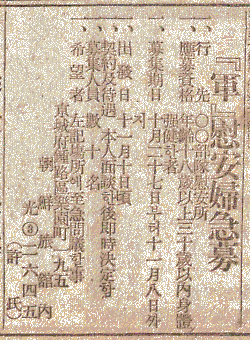 『軍』慰安婦急募
一、行先 〇〇部隊慰安所
一、應募資格 年齡十八歲以上三十歲以內身體强健한者
一、募集期日 十月二十七日부터十一月八日까지
一、出發日 十一月十日頃
一、契約及待遇 本人面談한後即時決定함
一、募集人員 數十名
一、希望者 左記場所에至急問議할事
京城府鍾路區樂園町一九五
朝鮮旅館內
光③二六四五
(許氏)